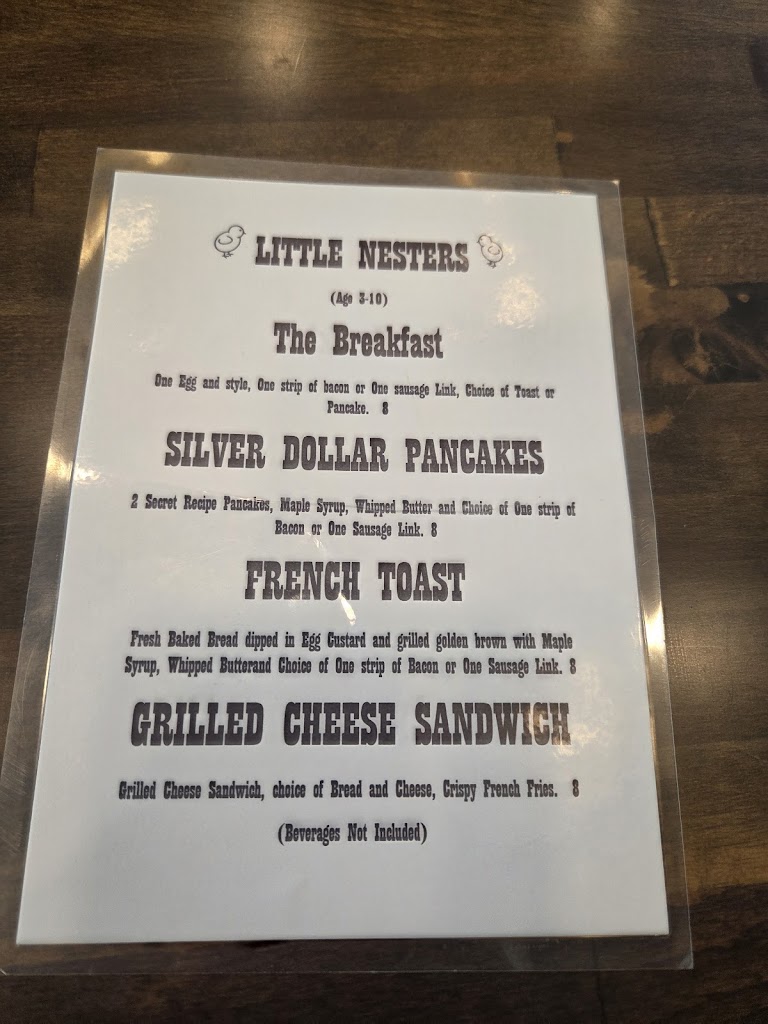 LITTLE NESTERS
(Age 3-10)
The Breakfast
One Egg and style, One strip of bacon or One sausage Link, Choice of Toast or
Pancake. 8
SILVER DOLLAR PANCAKES
2 Secret Recipe Pancakes, Maple Syrup, Whipped Butter and Choice of One strip of
Bacon or One Sausage Link. 8
FRENCH TOAST
Fresh Baked Bread dipped in Egg Custard and grilled golden brown with Maple
Syrup, Whipped Butterand Choice of One strip of Bacon or One Sausage Link. 8
GRILLED CHEESE SANDWICH
Grilled Cheese Sandwich, choice of Bread and Cheese, Crispy French Fries. 8
(Beverages Not Included)